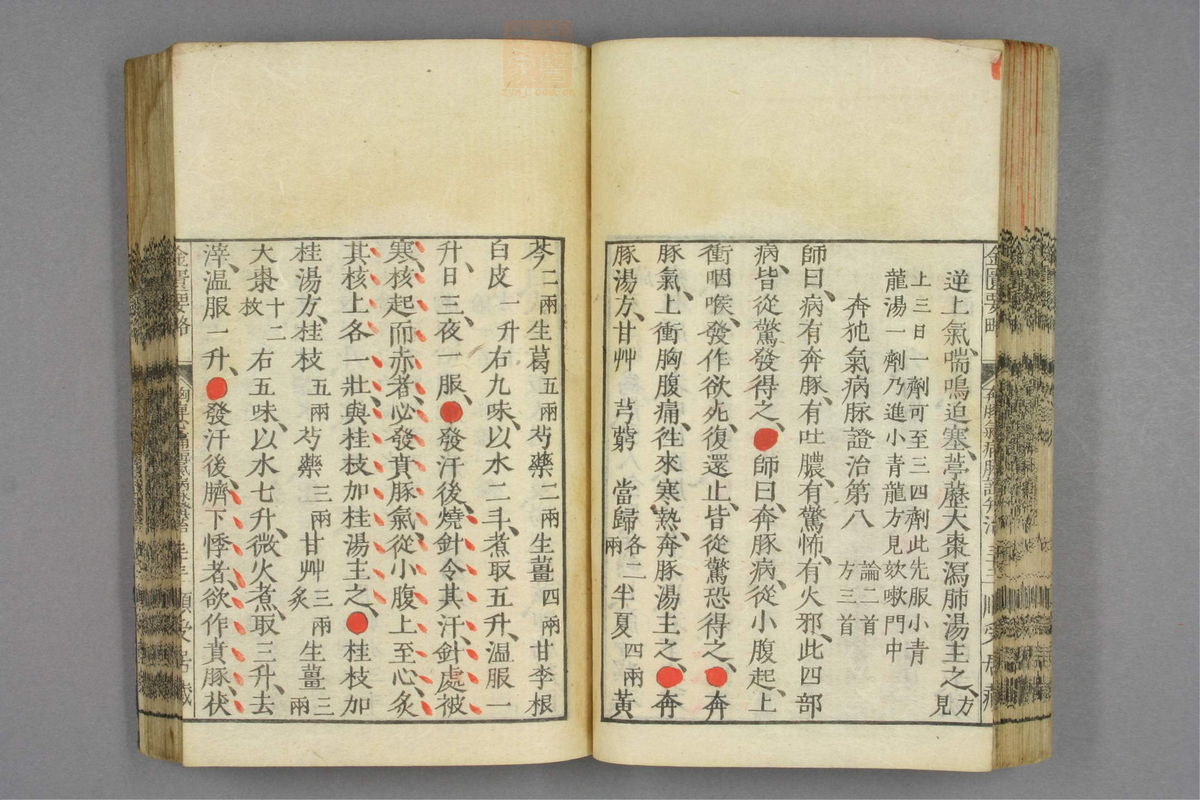 逆上氣、喘鳴迫塞、葶藶大棗瀉肺湯主之、方見
上三日一劑可至三四劑此先服小青
龍湯一劑乃進小青龍方見欬嗽門中
奔㹠氣病脉證治第八 論二首 方三首
師曰、病有奔豚、有吐膿、有驚怖、有火邪、此四部
病、皆從驚發得之、師曰、奔豚病、從小腹起、上
衝咽喉、發作欲死、復還止、皆從驚恐得之、奔
豚氣、上衝胸腹痛、徃來寒熱、奔豚湯主之、奔
豚湯方、甘艸 芎藭 當歸各二兩 半夏四兩 黃
芩二兩 生葛五兩 芍藥二兩 生薑四兩 甘李根
白皮一升 右九味、以水二斗、煮取五升、温服一
升、日三、夜一服、發汗後、燒針令其汗、針處被
寒、核起而赤者、必發賁豚氣、從小腹上至心、灸
其核上各一壯、與桂枝加桂湯主之、桂枝加
桂湯方、桂枝五兩 芍藥三兩 甘艸三兩炙 生薑三兩
大棗十二枚 右五味、以水七升、微火煮、取三升、去
滓、温服一升、發汗後、臍下悸者、欲作賁豚、茯
金匱要略
金匱要略